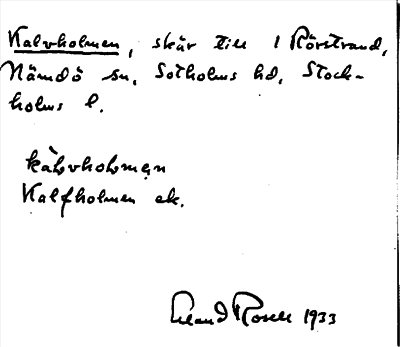 Kalvholmen, skär till 1 Rörstrand,
Nämdö sn, Sotholms hd, Stock-
holms l.
kàlvholmęn
Kalfholmen ek.
Erland Rosell 1933